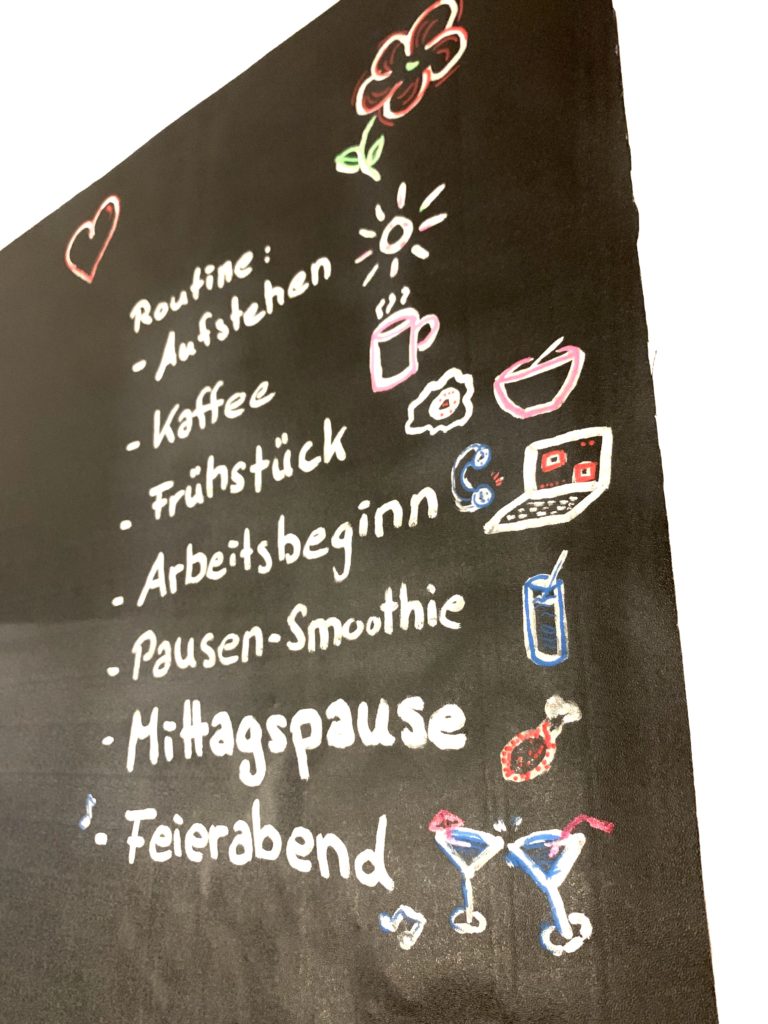 Routine:
- Aufstehen
- Kaffee
- Frühstück
- Arbeitsbeginn
- Pausen-Smoothie
- Mittagspause
- Feierabend